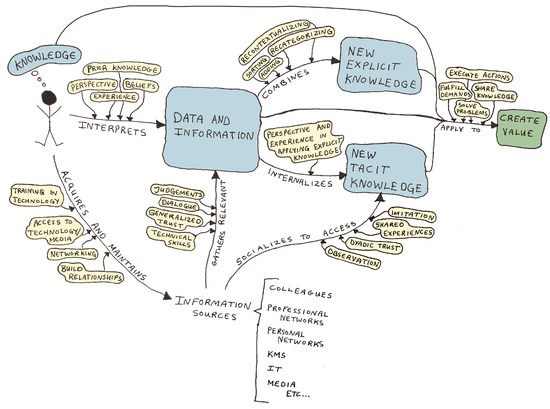 KNOWLEDGE
PRIOR KNOWLEDGE
PERSPECTIVE
BELIEFS
EXPERIENCE
INTERPRETS
DATA AND
INFORMATION
RECONTEXTUALIZING
RECATEGORIZING
SORTING
ADDING
COMBINES
NEW
EXPLICIT
KNOWLEDGE
PERSPECTIVE AND
EXPERIENCE IN
APPLYING EXPLICIT
KNOWLEDGE
INTERNALIZES
NEW
TACIT
KNOWLEDGE
EXECUTE ACTIONS
FULFILL
DEMANDS
SHARE
KNOWLEDGE
SOLVE
PROBLEMS
APPLY TO
CREATE
VALUE
TRAINING IN
TECHNOLOGY
ACCESS TO
TECHNOLOGY/
MEDIA
NETWORKING
BUILD
RELATIONSHIPS
ACQUIRES AND MAINTAINS
JUDGEMENTS
DIALOGUE
GENERALIZED
TRUST
TECHNICAL
SKILLS
GATHERS RELEVANT
SOCIALIZES TO ACCESS
IMITATION
SHARED
EXPERIENCES
DYADIC TRUST
OBSERVATION
INFORMATION
SOURCES
COLLEAGUES
PROFESSIONAL
NETWORKS
PERSONAL
NETWORKS
KMS
IT
MEDIA
ETC...